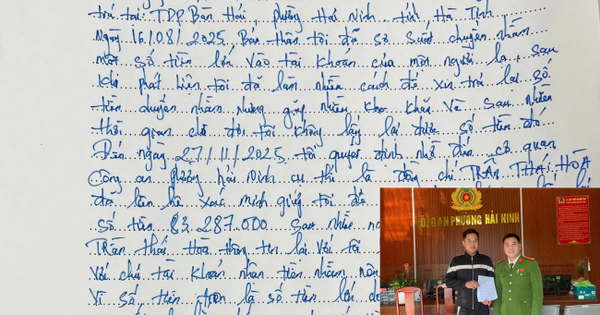 trú tại: TDP Bàn Hải, phường Hải Ninh tỉnh Hà Tĩnh
Ngày 16/08/2025 Bản thân tôi đã sơ suất chuyển nhầm
một số tiền lớn vào tài khoản của một người lạ, sau
khi phát hiện tôi đã làm nhiều cách để xin trả lại số
tiền chuyển nhầm nhưng gặp nhiều khó khăn và sau nhiều
thời gian chờ đợi tôi không lấy lại được số tiền đó
Đến ngày 27/11/2025 tôi quyết định nhờ đến cơ quan
Công an phường hải Ninh cụ thể là đồng chí TRẦN THÁI HÒA
đã liên hệ xác minh giúp tôi để
số tiền 83.287.000 sau nhiều
Trần thái Hoà thông tin lại với tôi
với chủ tài khoản nhận tiền nhầm
Vì số tiền trên là số tiền lớn
CÔNG AN PHƯỜNG HẢI NINH